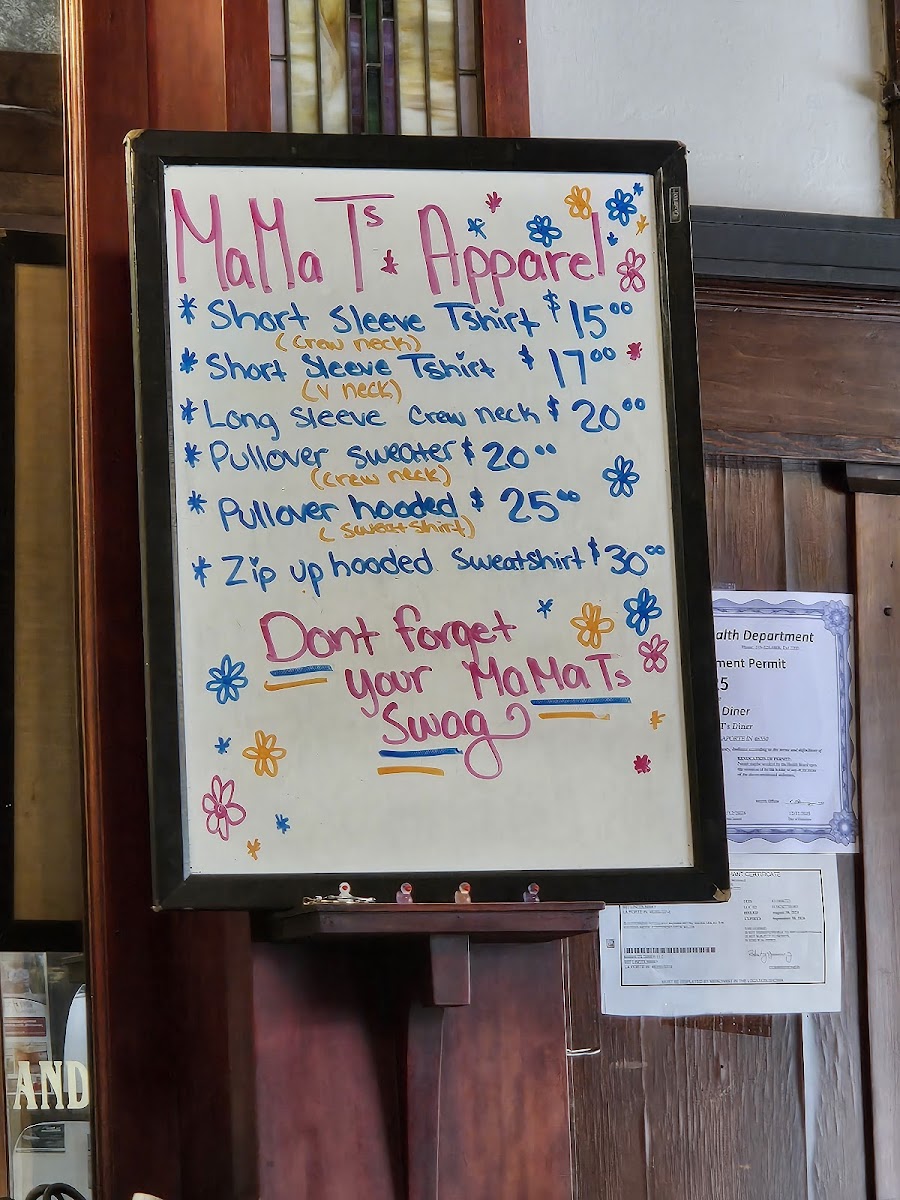 MaMa Ts Apparel
* Short Sleeve Tshirt $15.00
(crew neck)
* Short Sleeve Tshirt $17.00
(v neck)
* Long Sleeve crew neck $20.00
* Pullover sweater $20.00
(crew neck)
* Pullover hooded $25.00
(sweatshirt)
* Zip up hooded Sweatshirt $30.00
Dont forget
your MaMa Ts
Swag
alth Department
ment Permit
Diner
T's Diner
LAPORTE IN 46350
REVOCATION OF PERMIT:
CERTIFICATE
AND